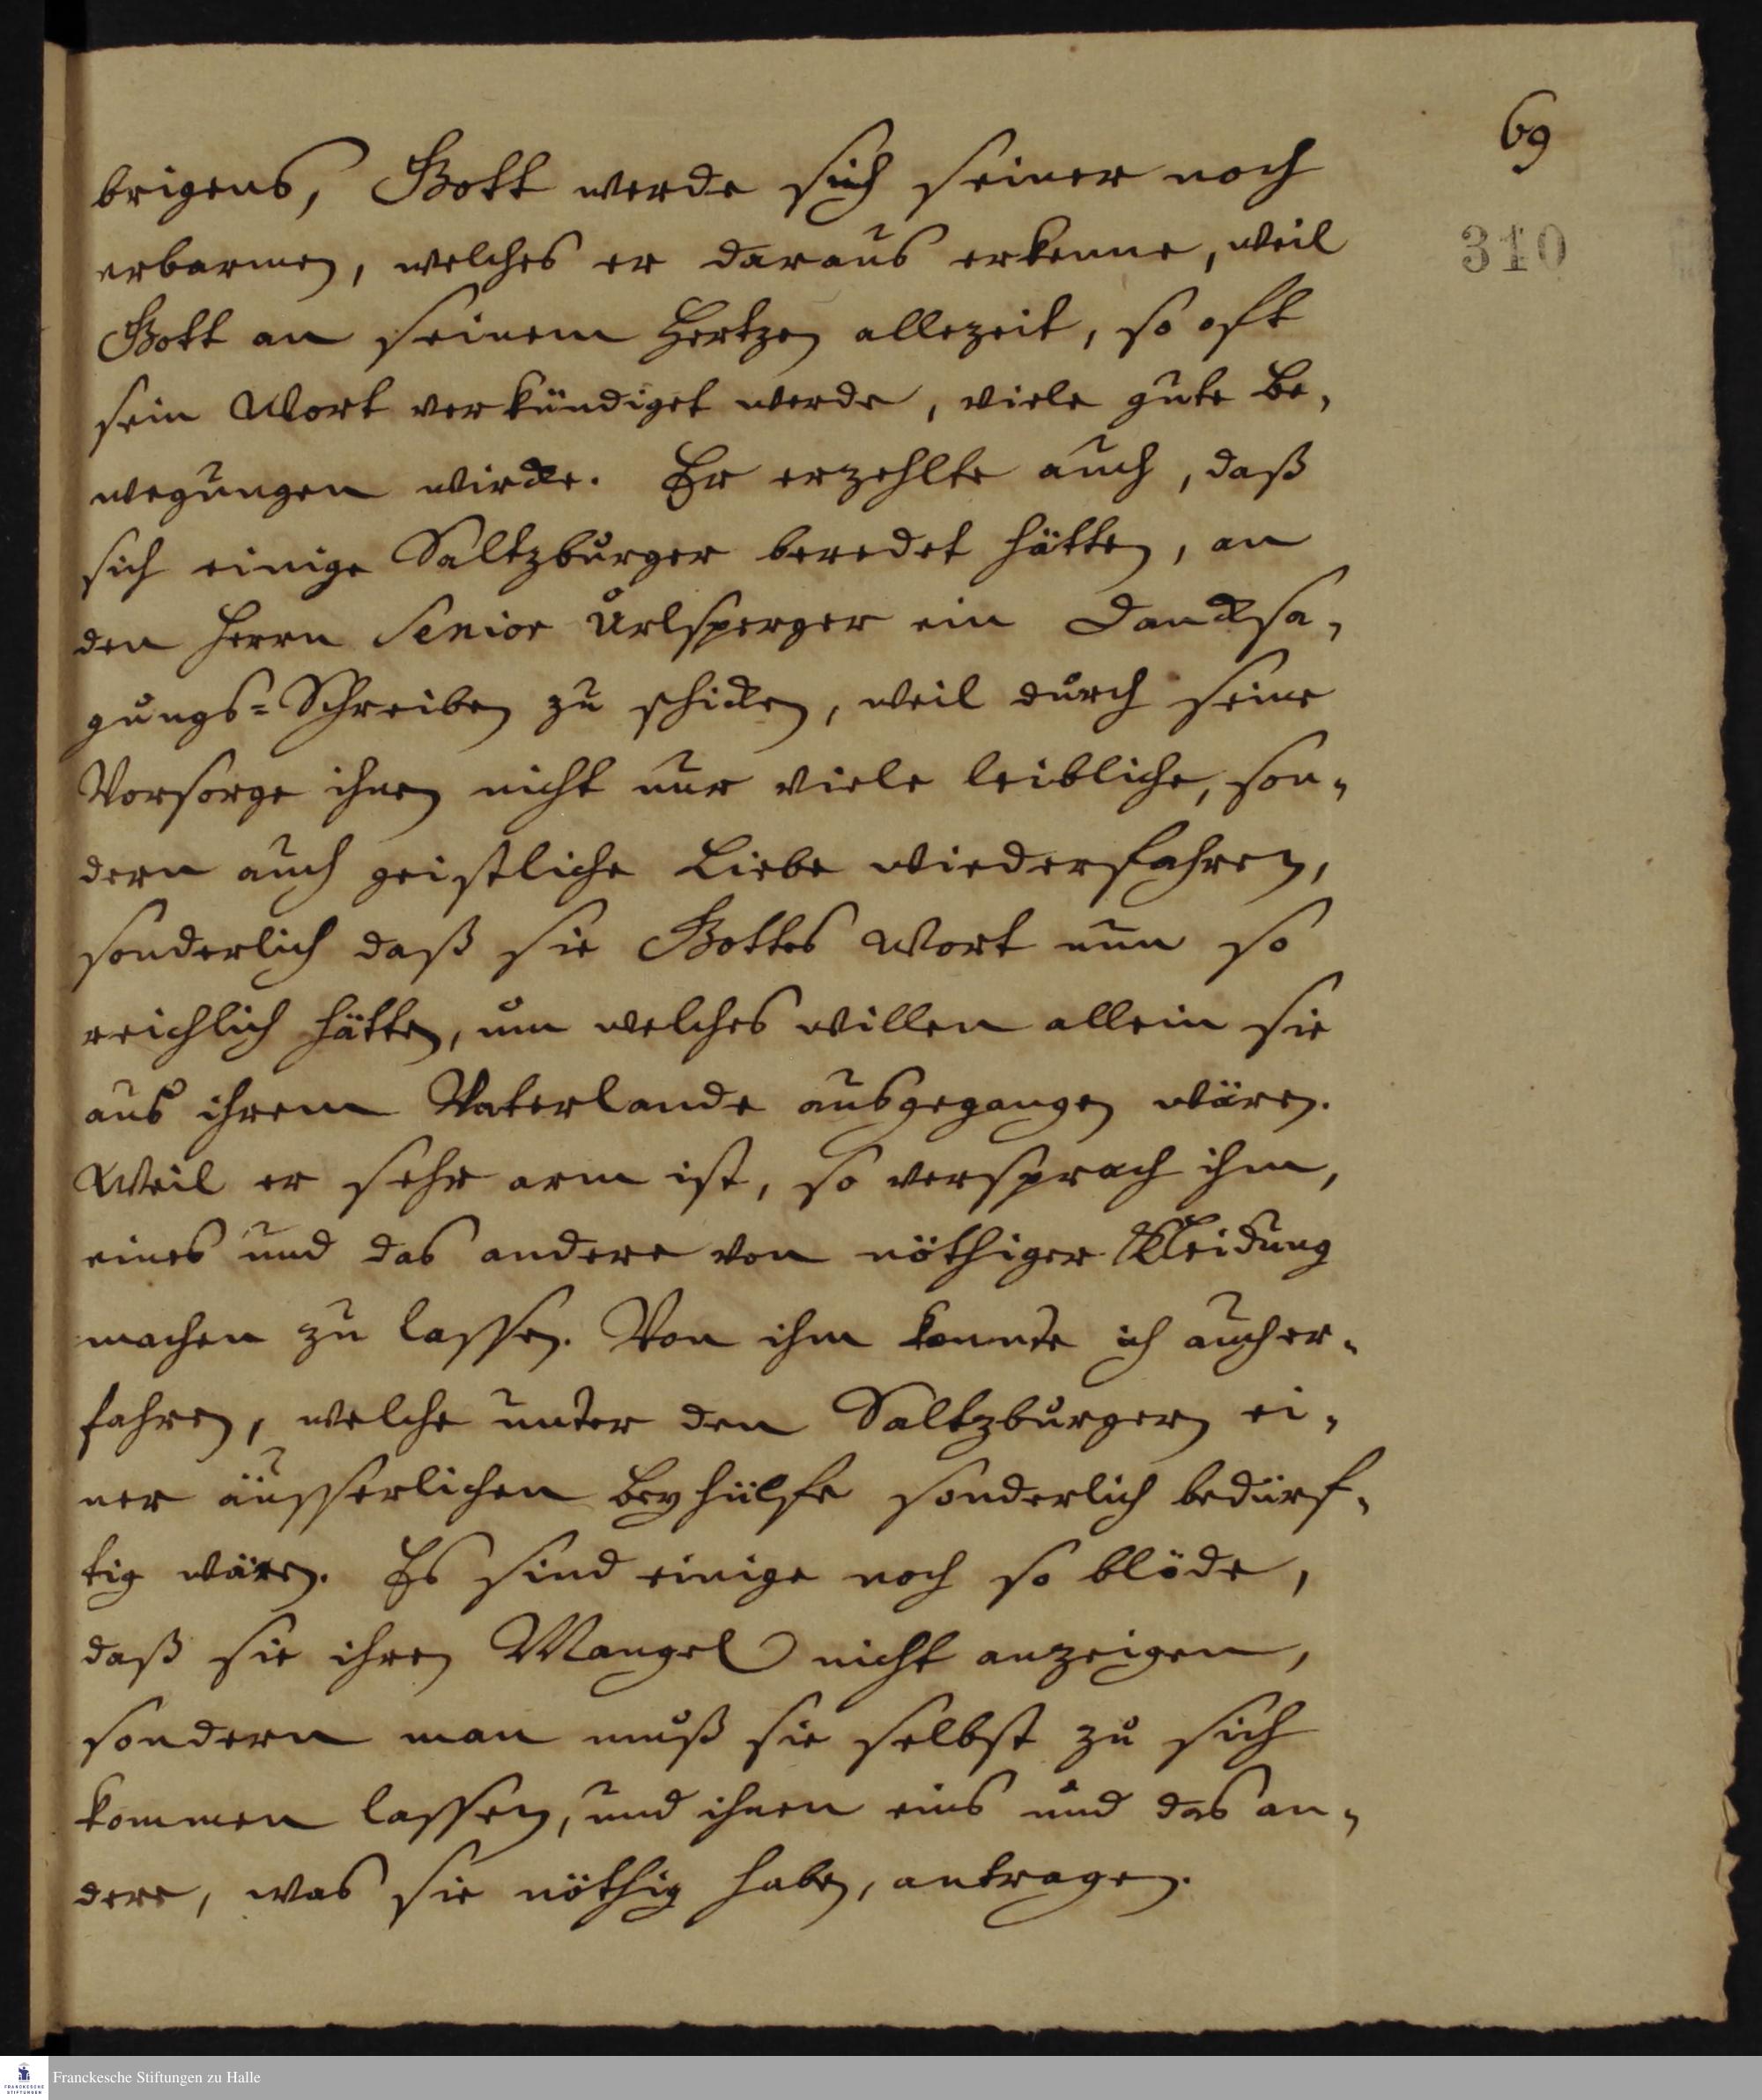 69
310
brigens, Gott werde sich seiner noch
erbarmen, welches er daraus erkenne, weil
Gott an seinem Hertzen allezeit, so oft
sein Wort verkündiget werde, viele gute Be-
wegungen wircke. Er erzehlte auch, daß
sich einige Saltzburger beredet hätten, an
den Herrn Senior Urlsperger ein Dancksa-
gungs-Schreiben zu schicken, weil durch seine
Vorsorge ihnen nicht nur viele leibliche, son-
dern auch geistliche Liebe wiederfahren,
sonderlich daß sie Gottes Wort nun so
reichlich hätten, um welches willen allein sie
aus ihrem Vaterlande ausgegangen wären.
Weil er sehr arm ist, so versprach ihm,
eines und das andere von nöthiger Kleidung
machen zu lassen. Von ihm konnte ich auch er-
fahren, welche unter den Saltzburgern ei-
ner äusserlichen Beyhülfe sonderlich bedürf-
tig wären. Es sind einige noch so blöde,
daß sie ihren Mangel nicht anzeigen,
sondern man muß sie selbst zu sich
kommen lassen, und ihnen eins und das an-
dere, was sie nöthig haben, antragen.
FRANCKESCHE STIFTUNGEN
Franckesche Stiftungen zu Halle